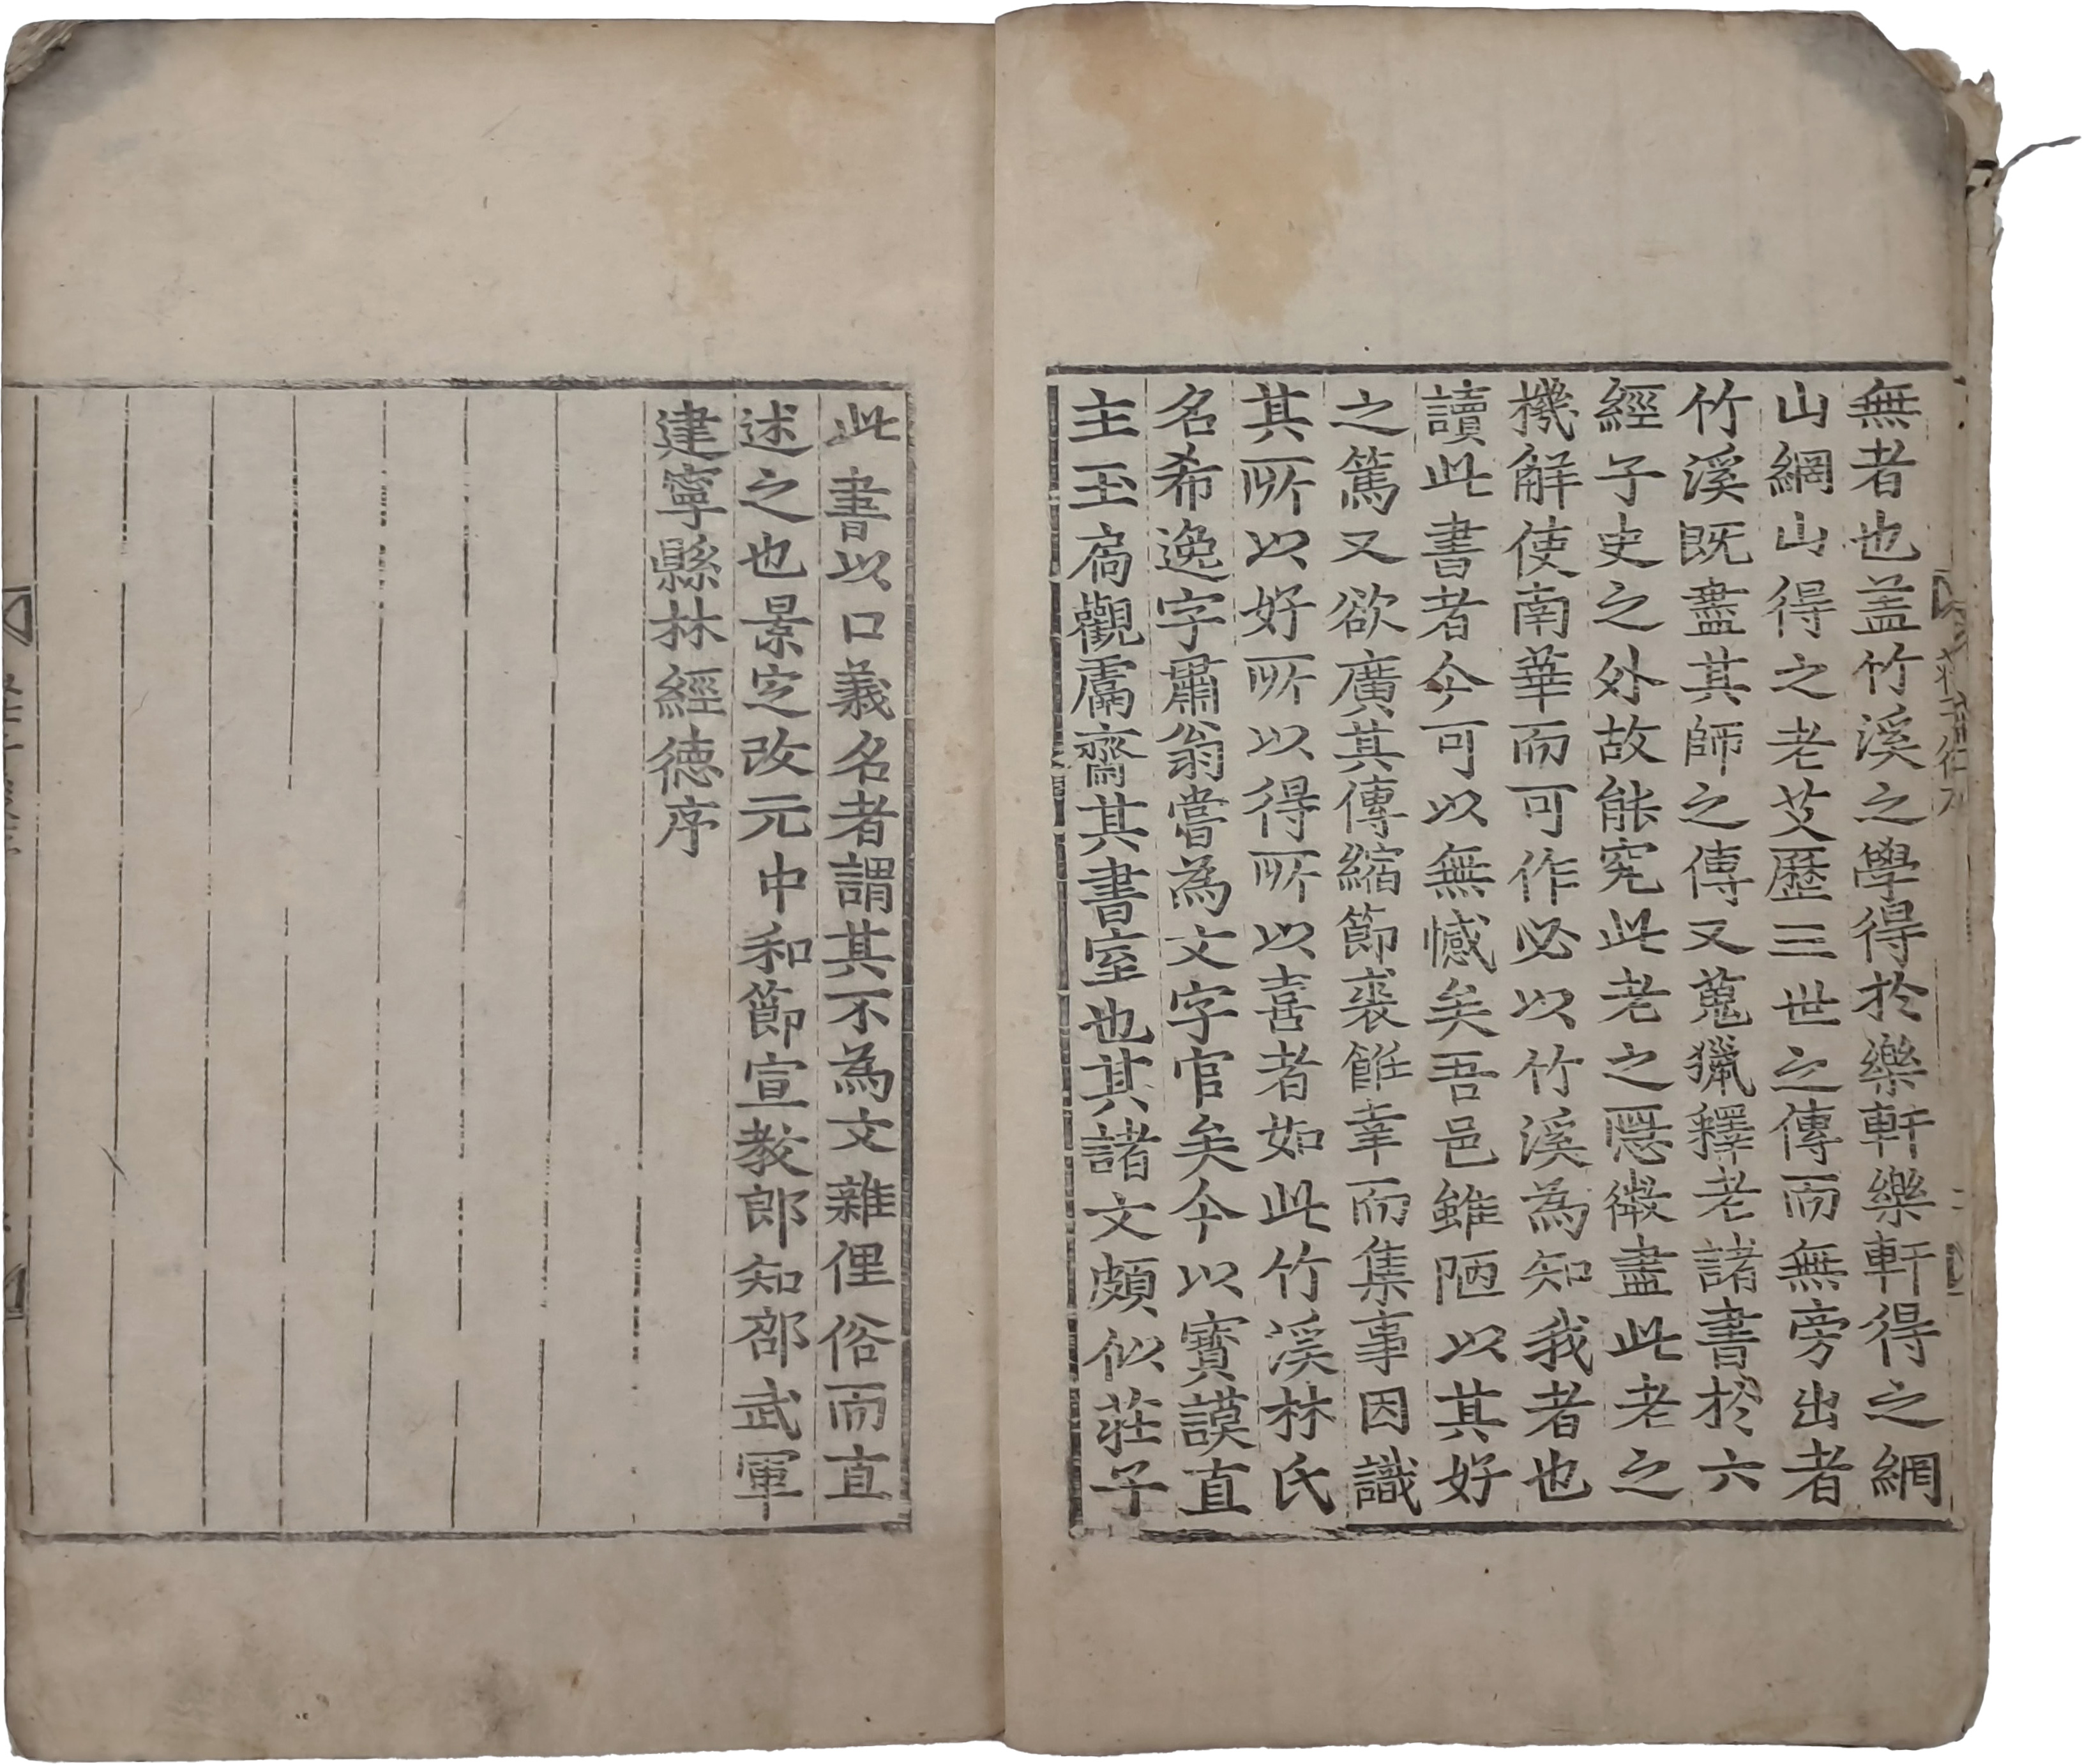 無者也盖竹溪之學得於樂軒樂軒得之網
山網山得之老艾歷三世之傳而無旁出者
竹溪既盡其師之傳又蒐獵釋老諸書於六
經子史之外故能究此老之隱微盡此老之
機解使南華而可作必以竹溪為知我者也
讀此書者今可以無憾矣吾邑雖陋以其好
之篤又欲廣其傳縮節裘餙幸而集事因識
其所以好所以得所以喜者如此竹溪林氏
名希逸字肅翁嘗為文字官矣今以寶謨直
主玉局觀鬳齋其書室也其諸文頗似莊子
此書以口義名者謂其不為文雜俚俗而直
述之也景定改元中和節宣教郎知邵武軍
建寧縣林經德序